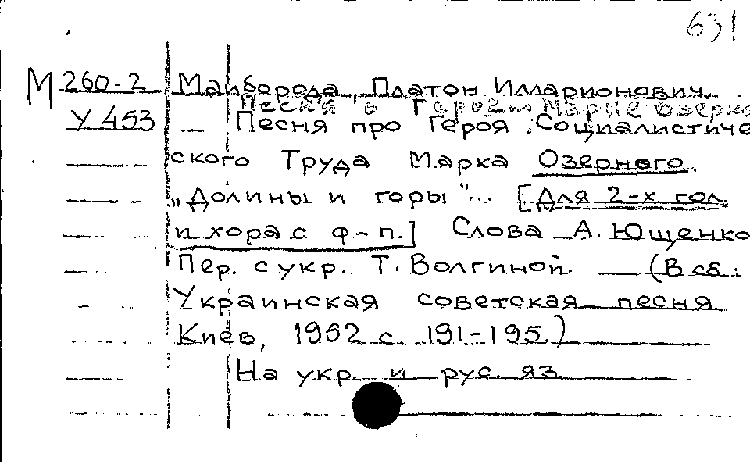 631
М 260-2 Майборода, Платон Илларионович.
Песня о Герое Марке Озерно
У 453 — Песня про Героя Социалистиче
ского Труда Марка Озерного
„Долины и горы"... [Для 2-х гол.
и хора с ф-п.] Слова А. Ющенко
Пер. с укр. Т. Волгиной. — (В сб.:
Украинская советская песня
Киев, 1952 с. 191-195)
На укр. и рус. яз.